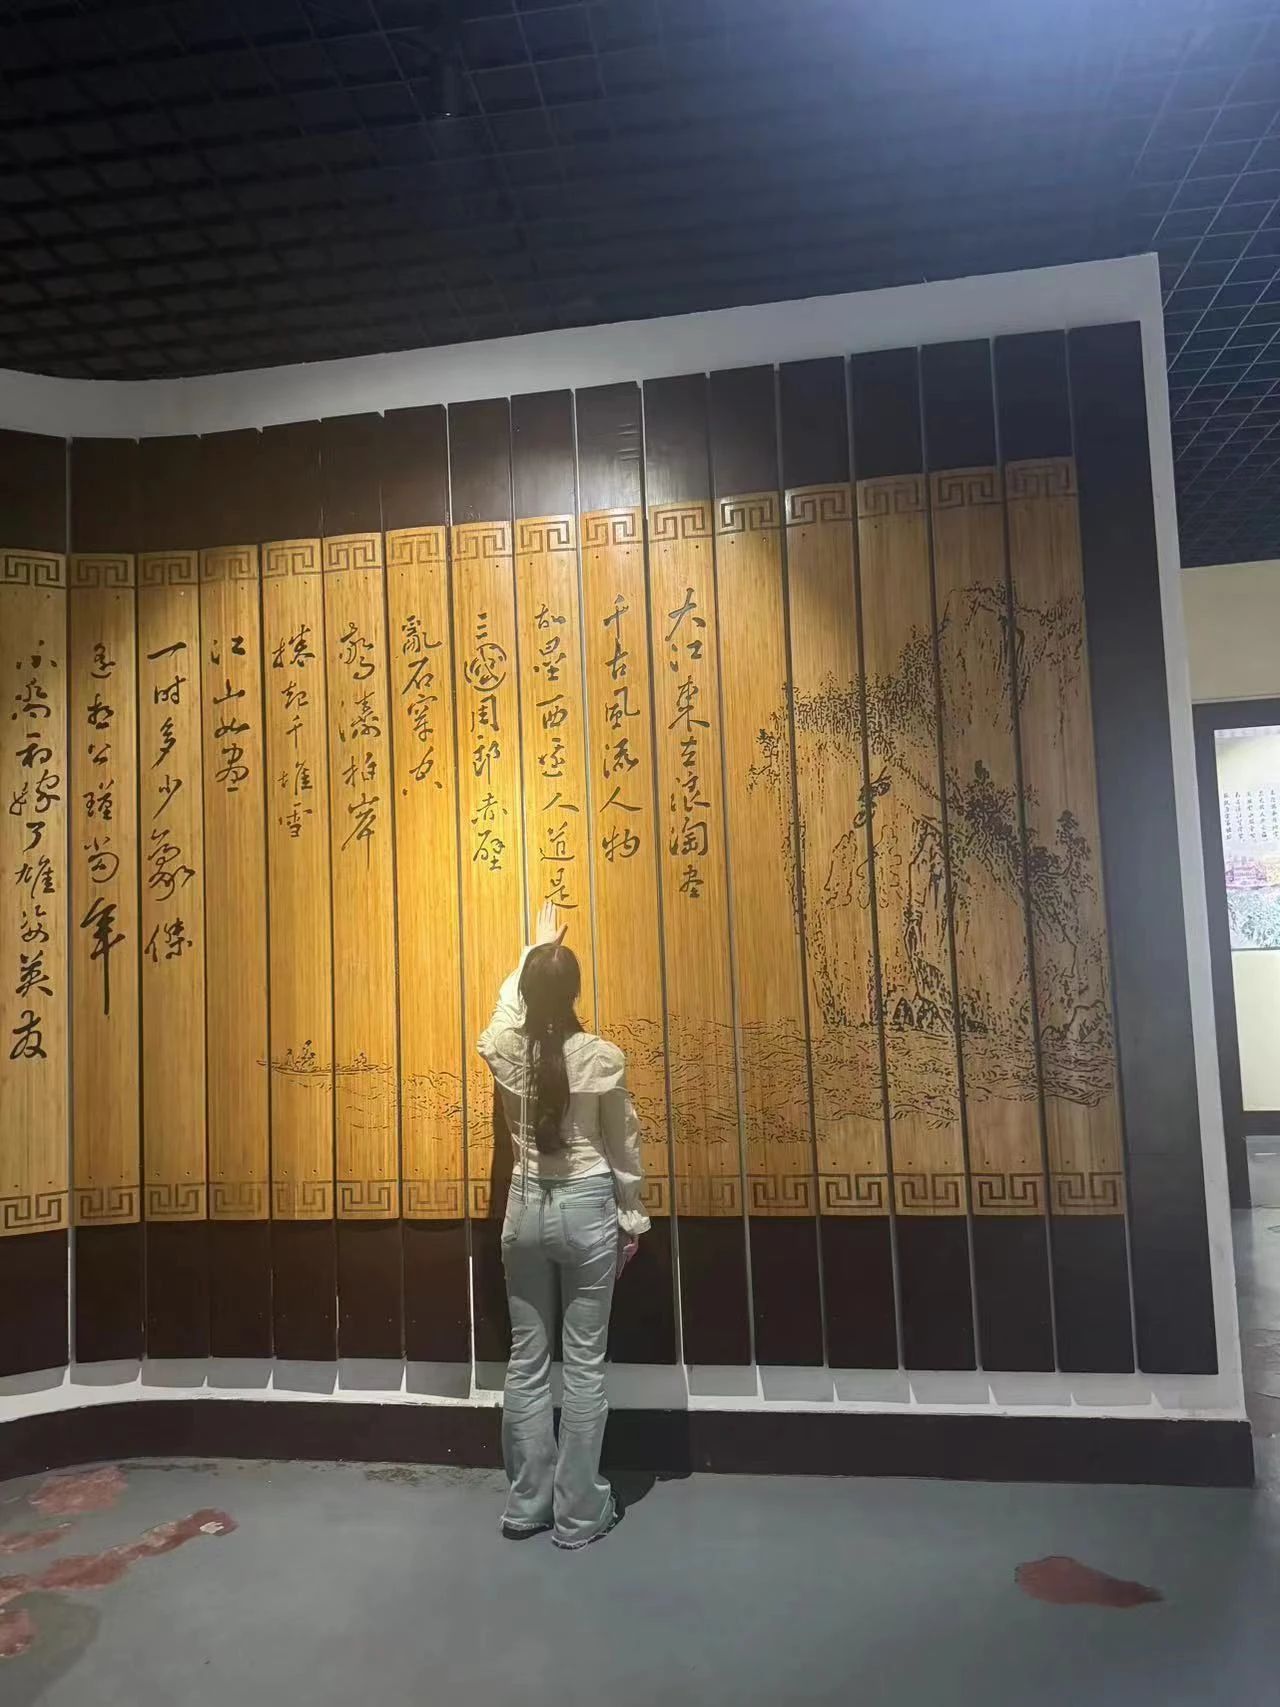 大江東去浪淘盡
千古風流人物
故壘西邊人道是
三國周郎赤壁
亂石穿空
驚濤拍岸
捲起千堆雪
江山如畫
一時多少豪傑
遙想公瑾當年
小喬初嫁了雄姿英發